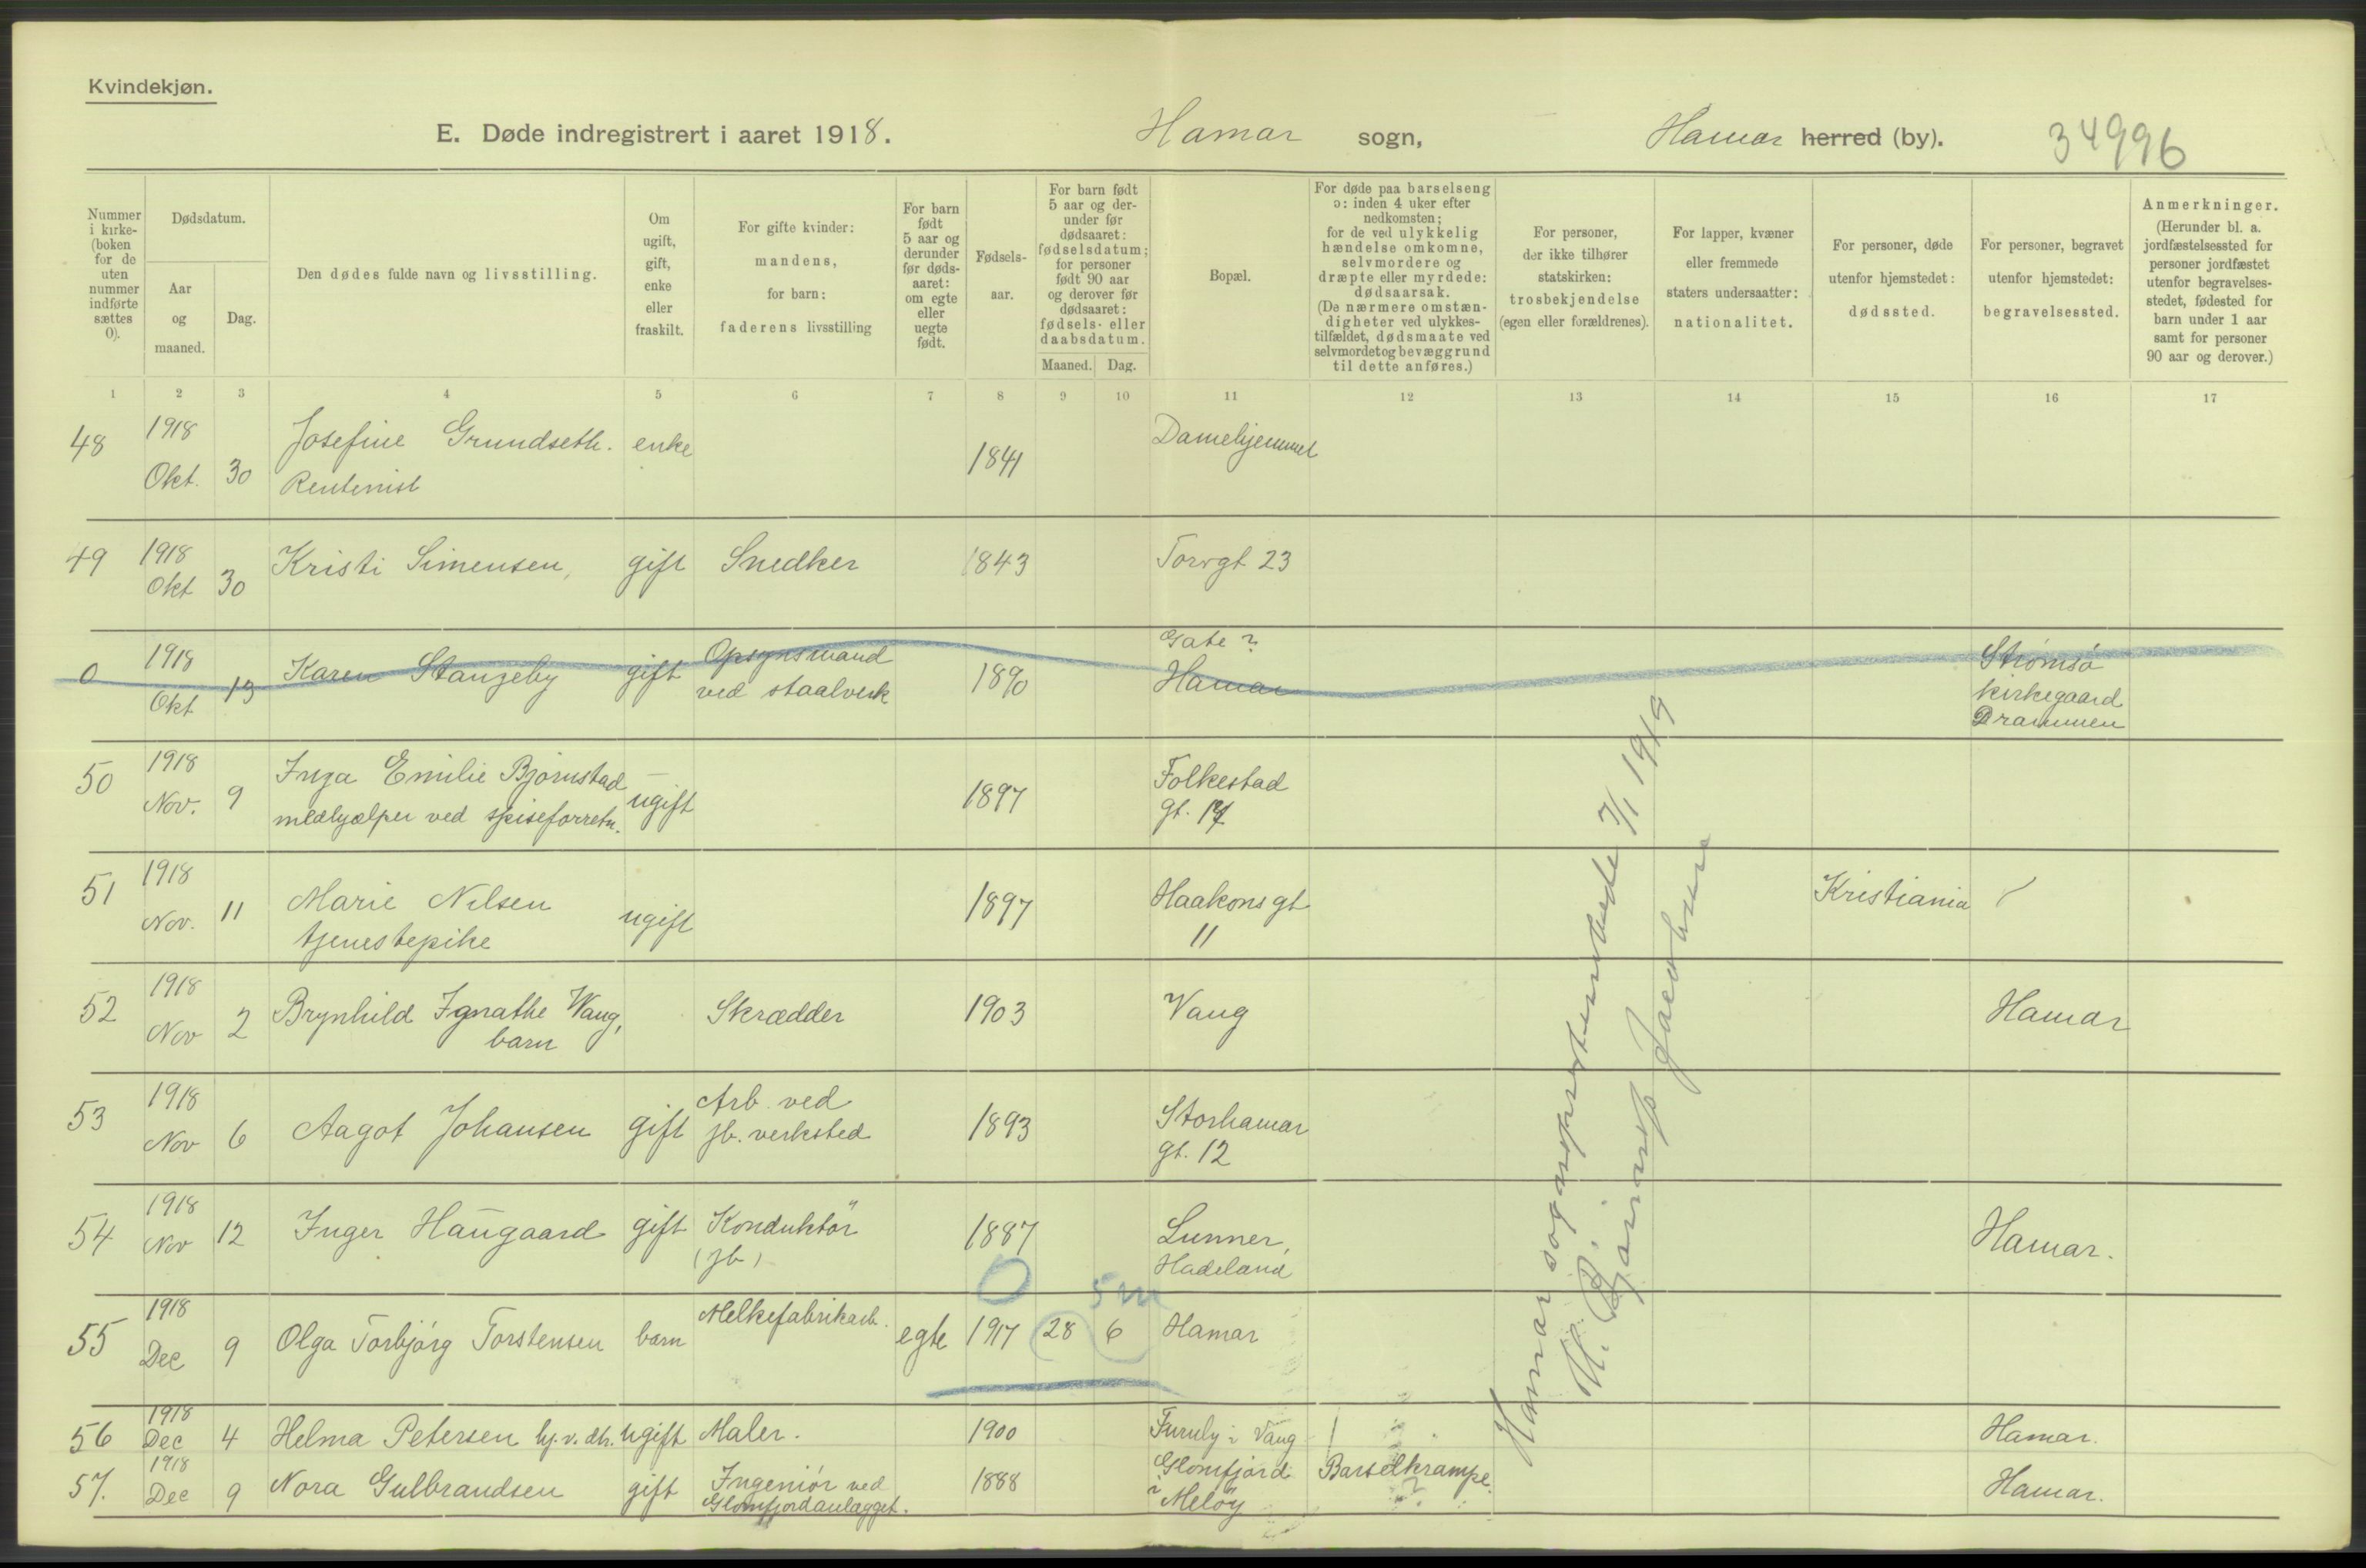 Kvindekjøn.
E. Døde indregistrert i aaret 1918.
Hamar sogn,
Hamar herred (by).
34996
Nummer i kirke-(boken for de uten nummer indførte sættes 0).
Dødsdatum.
Aar og maaned.
Dag.
Den dødes fulde navn og livsstilling.
Om ugift, gift, enke eller fraskilt.
For gifte kvinder: mandens, for barn: faderens livsstilling
For barn født 5 aar og derunder før døds-aaret: om egte eller uegte født.
Fødsels-aar.
For barn født 5 aar og der-under før dødsaaret: fødselsdatum; for personer født 90 aar og derover før dødsaaret: fødsels- eller daabsdatum.
Maaned. Dag.
Bopæl.
For døde paa barselseng ɔ: inden 4 uker efter nedkomsten; for de ved ulykkelig hændelse omkomne, selvmordere og dræpte eller myrdede: dødsaarsak. (De nærmere omstæn-digheter ved ulykkes-tilfældet, dødsmaate ved selvmordet og bevæggrund til dette anføres.)
For personer, der ikke tilhører statskirken: trosbekjendelse (egen eller forældrenes).
For lapper, kvæner eller fremmede staters undersaatter: nationalitet.
For personer, døde utenfor hjemstedet: dødssted.
For personer, begravet utenfor hjemstedet: begravelsessted.
Anmerkninger. (Herunder bl. a. jordfæstelsessted for personer jordfæstet utenfor begravelses-stedet, fødested for barn under 1 aar samt for personer 90 aar og derover.)
1 2 3 4 5 6 7 8 9 10 11 12 13 14 15 16 17
48 1918 Okt. 30 Josefine Grundseth. Rentenist enke 1841 Damehjemmet
49 1918 Okt 30 Kristi Simensen, gift Snedker 1843 Torvgt 23
0 1918 Okt 13 Karen Stangeby gift Opsynsmand ved staalverk 1890 Gate ? Hamar Strömsö kirkegaard Drammen
50 1918 Nov. 9 Inga Emilie Bjørnstad medhjælper ved spiseforretn. ugift 1897 Folkestad gt.
51 1918 Nov. 11 Marie Nilsen tjenestepike ugift 1897 Haakons gt 11 Kristiania
52 1918 Nov 2 Brynhild Ignathe Wang, barn Skrædder 1903 Vang Hamar
53 1918 Nov 6 Aagot Johansen gift Arb. ved jb. verksted 1893 Storhamar gt. 12
54 1918 Nov 12 Inger Haugaard gift Konduktör (jb) 1887 Lunner, Hadeland Hamar.
0 5 m
55 1918 Dec 9 Olga Torbjórg Torstensen barn Melkefabrikarb. egte 1917 28 6 Hamar
56 1918 Dec 4 Helma Petersen hj.v.dh. ugift Maler. 1900 Furuly i Vang Hamar.
57. 1918 Dec 9 Nora Gulbrandsen gift Ingeniór ved Glomfjordanlægget. 1888 Glomfjord ? Melöy Barselkrampe. ? Hamar.
Hamar sogneprestembede 7/1 1919